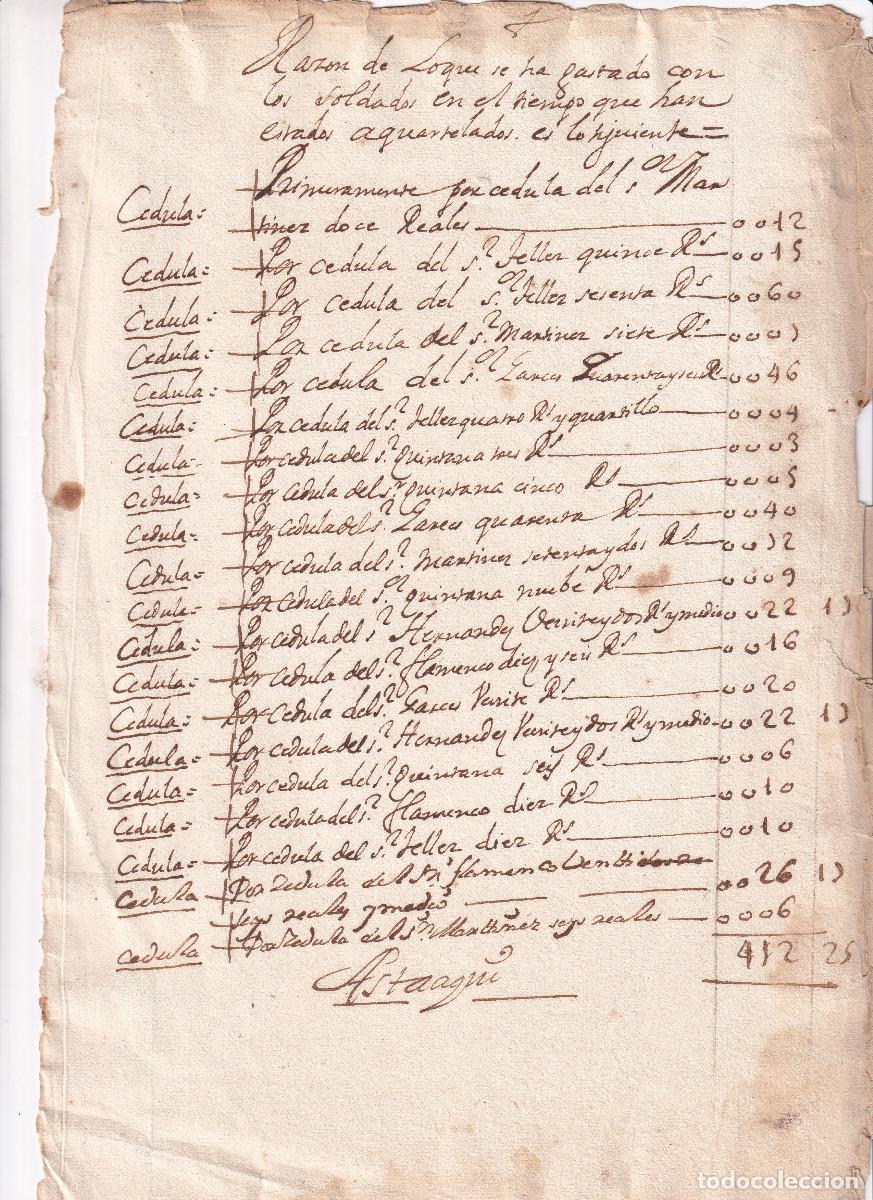 Razon de Loque se ha gastado con
los soldados en el tiempo que han
estados aquartelados. es lo siguiente=
Cedula= Primeramente por cedula del s.or Mar
tinez doce Reales 0012
Cedula= Por cedula del s.r Tellez quince Rs 0015
Cedula= Por cedula del s.or Tellez sesenta Rs 0060
Cedula= Por cedula del s.r Martinez siete Rs 0007
Cedula= Por cedula del s.or Garces Quarenta y seis Rs 0046
Cedula= Por cedula del s.r Tellez quatro Rs y quartillo 0004
Cedula= Por cedula del s.r quintana tres Rs 0003
Cedula= Por cedula del s.r quintana cinco Rs 0005
Cedula= Por cedula del s.r Garces quarenta Rs 0040
Cedula= Por cedula del s.r Martinez setenta y dos Rs 0072
Cedula= Por cedula del s.or quintana nuebe Rs 0009
Cedula= Por cedula del s.r Hernandez Veinte y dos Rs y medio 0022 17
Cedula= Por cedula del s.r flamenco diez y seis Rs 0016
Cedula= Por cedula del s.r Garces Veinte Rs 0020
Cedula= Por cedula del s.r Hernandez Veinte y dos Rs y medio 0022 17
Cedula= Por cedula del s.r quintana seys Rs 0006
Cedula= Por cedula del s.r flamenco diez Rs 0010
Cedula= Por cedula del s.r Tellez diez Rs 0010
Cedula Por Zedula del s.r flamenco Ventti
seys reales y medio 0026 17
cedula Por Zedula del s.r Marttinez seys reales 0006
412 25
Asta aqui
todocoleccion